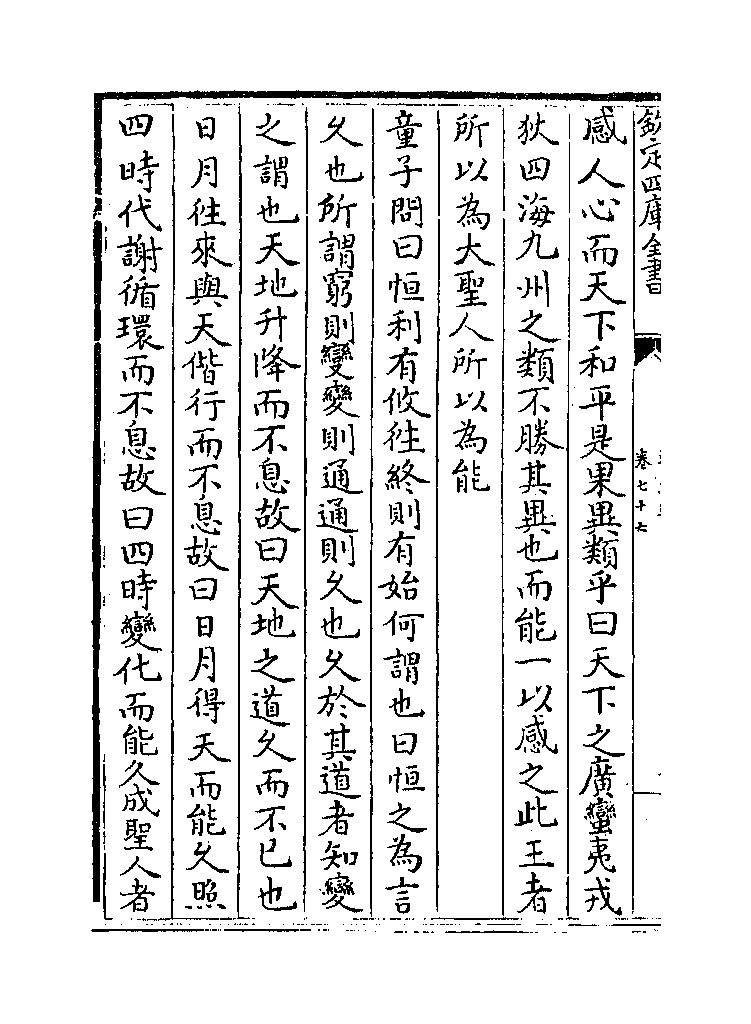 欽定四庫全書
卷七十七
感人心而天下和平是果異類乎曰天下之廣蠻夷戎
狄四海九州之類不勝其異也而能一以感之此王者
所以為大聖人所以為能
童子問曰恒利有攸往終則有始何謂也曰恒之為言
乆也所謂窮則變變則通通則乆也乆於其道者知變
之謂也天地升降而不息故曰天地之道乆而不已也
日月往來與天偕行而不息故曰日月得天而能乆照
四時代謝循環而不息故曰四時變化而能久成聖人者